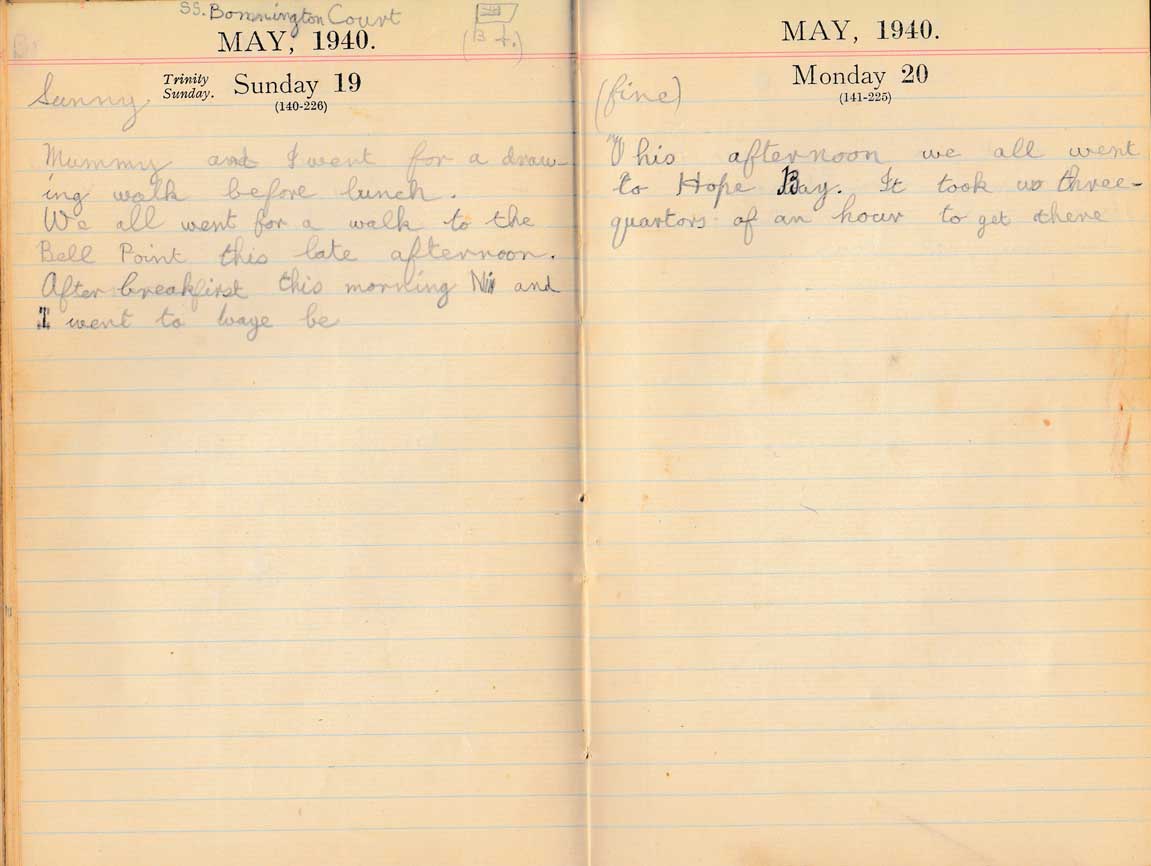 SS. Bonnington Court
MAY, 1940.
Trinity
Sunday.
Sunday 19
(140-226)
Sunny
Mummy and I went for a draw-
ing walk before lunch.
We all went for a walk to the
Bell Point this late afternoon.
After breakfirst this morning and
I went to be
MAY, 1940.
Monday 20
(141-225)
(fine)
This afternoon we all went
to Hope Bay. It took us three-
quartors of an hour to get there